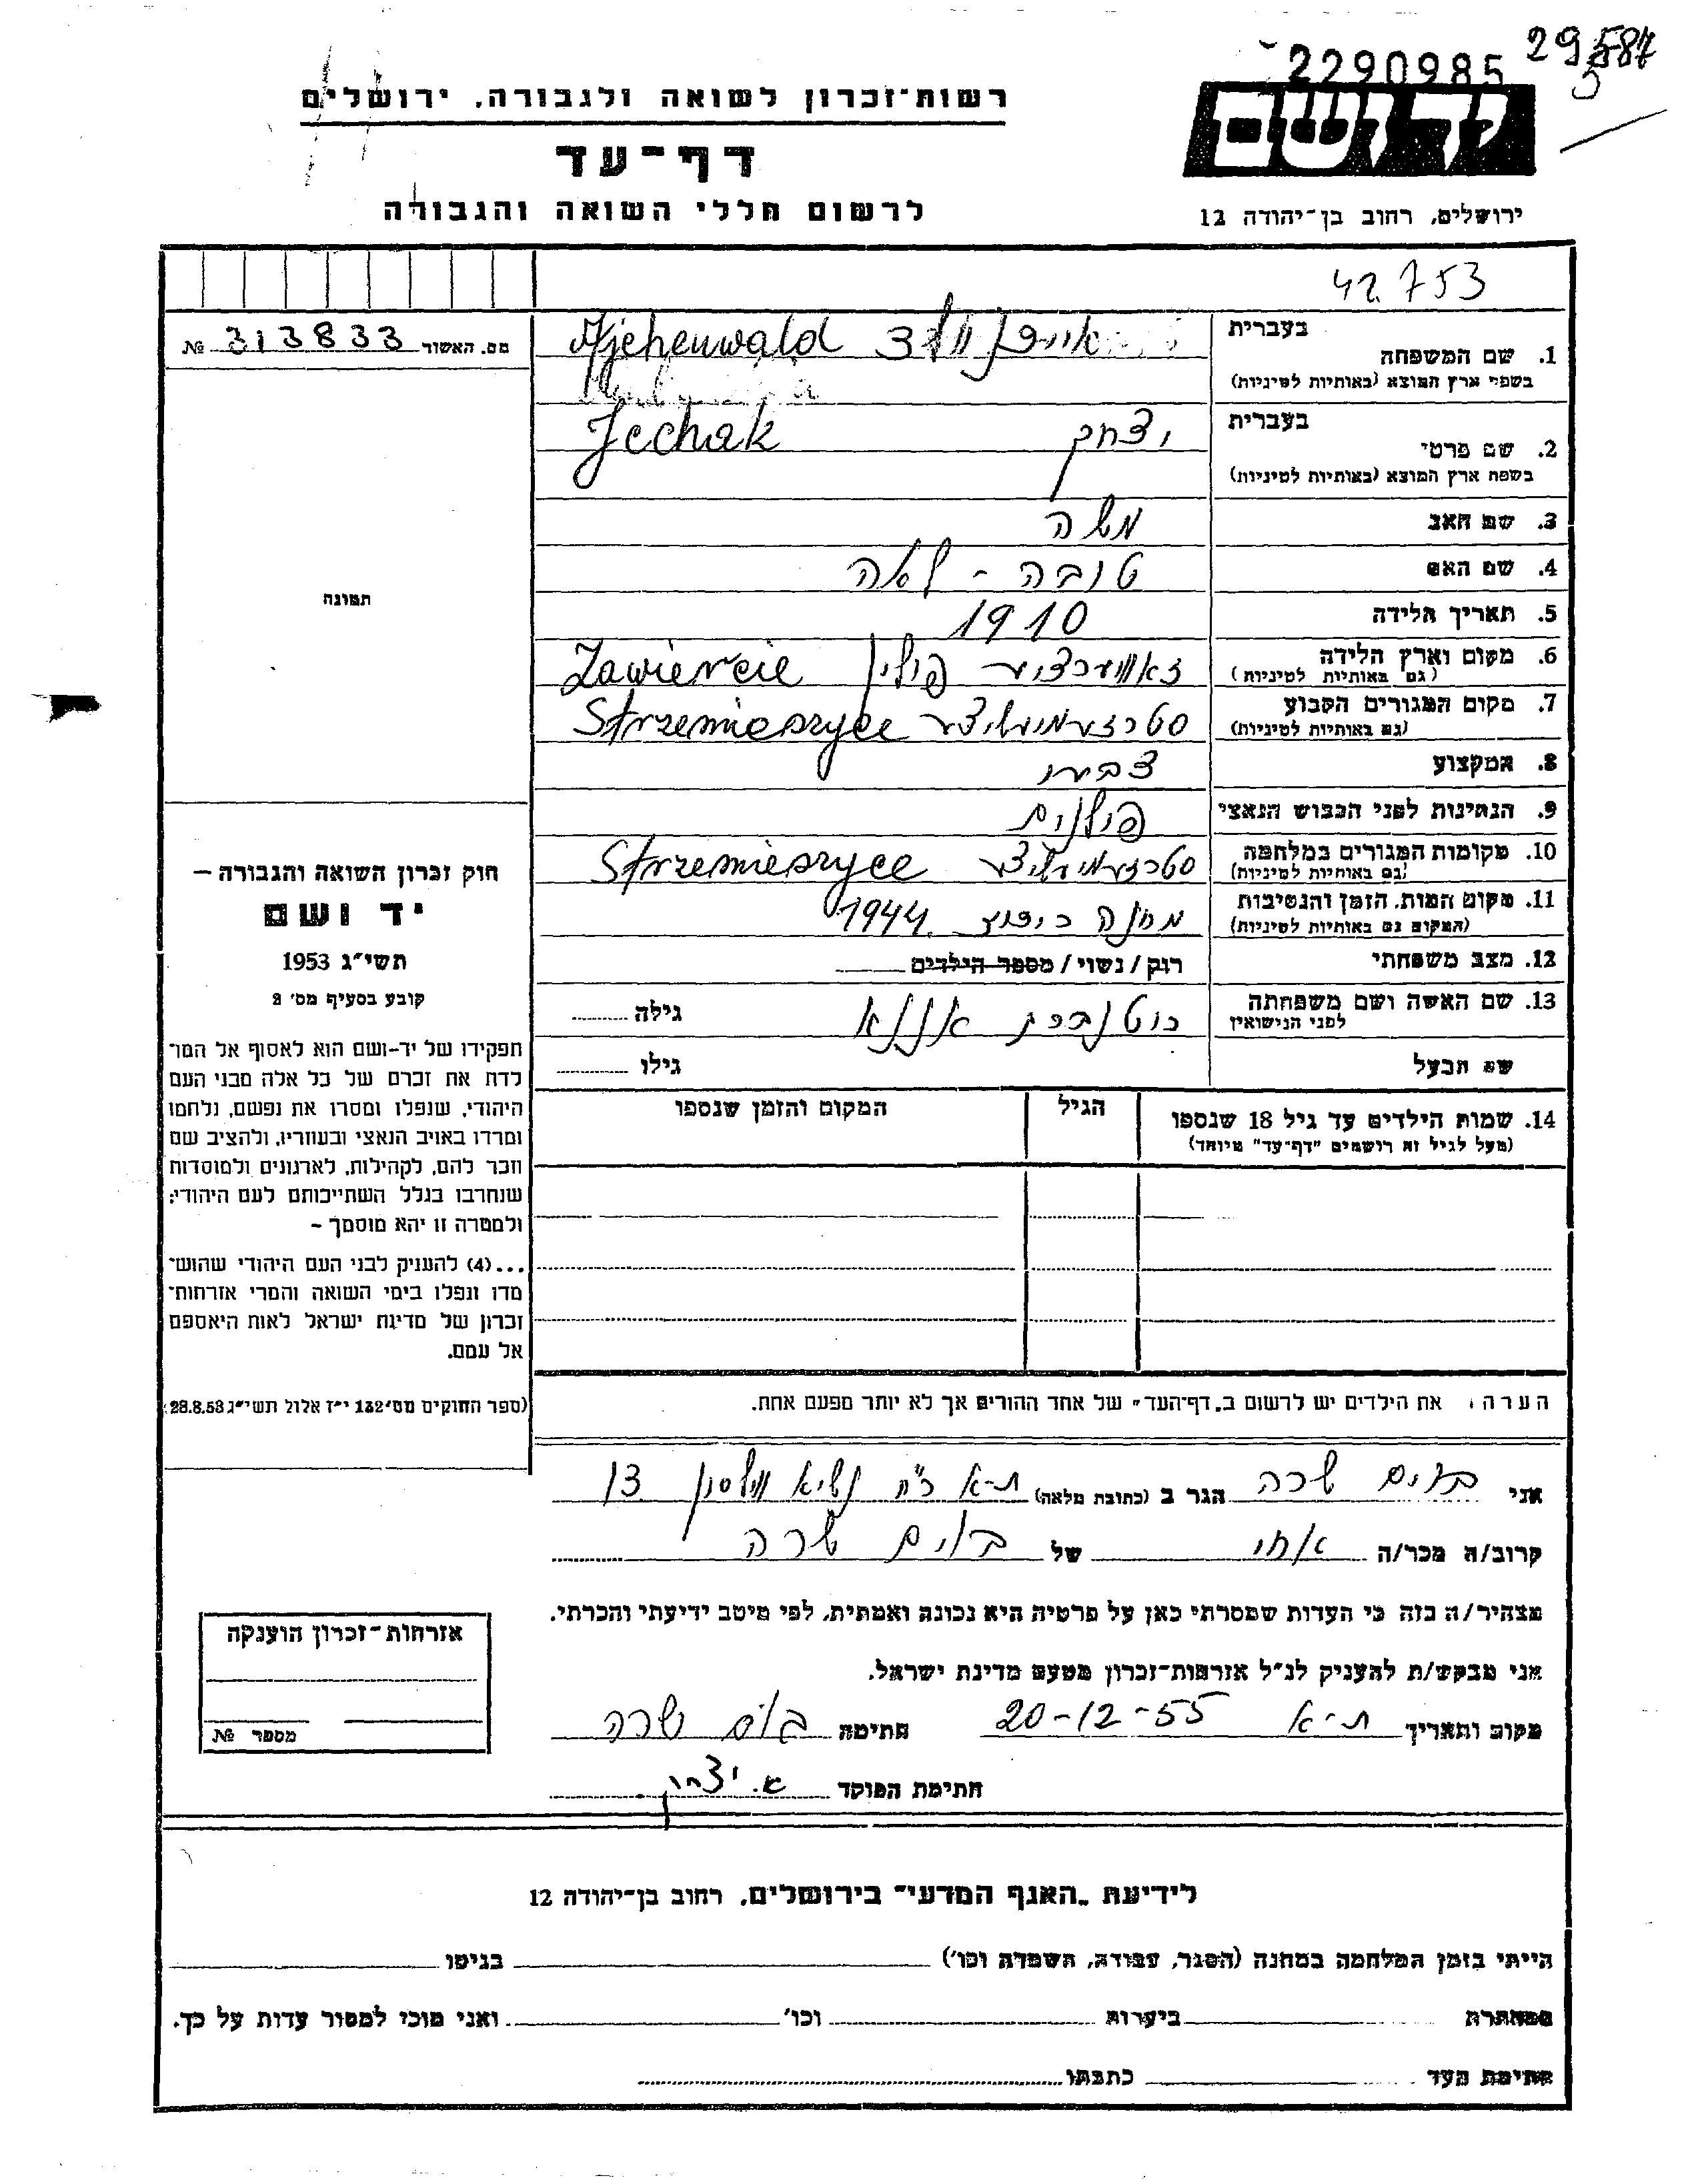 29587
5
2290985
יד ושם
ירושלים, רחוב בן־יהודה 12
רשות־זכרון לשואה ולגבורה, ירושלים
דף־עד
לרשום חללי השואה והגבורה
42.753
מס. האשור 313833 №
בעברית
1. שם המשפחה
בשפת ארץ המוצא (באותיות לטיניות)
Ajchenwald
בעברית
2. שם פרטי יצחק Jcchak
בשפת ארץ המוצא (באותיות לטיניות)
3. שם האב משה
4. שם האם טובה - לאה
5. תאריך הלידה 1910
6. מקום וארץ הלידה
(גם באותיות לטיניות)
זאוויערציע פולין Zawiercie
7. מקום המגורים הקבוע
(גם באותיות לטיניות)
Strzemieszyce
8. המקצוע צבעי
9. הנתינות לפני הכבוש הנאצי פולנית
10. מקומות המגורים במלחמה
(גם באותיות לטיניות)
Strzemieszyce
11. מקום המות, הזמן והנסיבות
(המקום גם באותיות לטיניות)
מחנה 1944
12. מצב משפחתי רוק / נשוי / מספר הילדים
13. שם האשה ושם משפחתה
לפני הנישואין
גילה
שם הבעל גילו
14. שמות הילדים עד גיל 18 שנספו
(מעל לגיל זה רושמים "דף־עד" מיוחד)
הגיל
המקום והזמן שנספו
תמונה
חוק זכרון השואה והגבורה –
יד ושם
תשי"ג 1953
קובע בסעיף מס' 2
תפקידו של יד-ושם הוא לאסוף אל המו־
לדת את זכרם של כל אלה מבני העם
היהודי, שנפלו ומסרו את נפשם, נלחמו
ומרדו באויב הנאצי ובעוזריו, ולהציב שם
וזכר להם, לקהילות, לארגונים ולמוסדות
שנחרבו בגלל השתייכותם לעם היהודי;
ולמטרה זו יהא מוסמך –
...(4) להעניק לבני העם היהודי שהוש־
מדו ונפלו בימי השואה והמרי אזרחות־
זכרון של מדינת ישראל לאות היאספם
אל עמם.
(ספר החוקים מס' 132 י"ז אלול תשי"ג 28.8.53)
הערה: את הילדים יש לרשום ב„דף־העד" של אחד ההורים אך לא יותר מפעם אחת.
אני בוים שרה הגר ב (כתובת מלאה) ת-א רח' נשיא ווילסון 13
קרוב/ה מכר/ה אחי של בוים שרה
מצהיר/ה בזה כי העדות שמסרתי כאן על פרטיה היא נכונה ואמתית, לפי מיטב ידיעתי והכרתי.
אני מבקש/ת להעניק לנ"ל אזרחות־זכרון מטעם מדינת ישראל.
מקום ותאריך ת-א 20-12-55 חתימה בוים שרה
חתימת הפוקד א. יצחק
אזרחות־זכרון הוענקה
מספר №
לידיעת „האגף המדעי" בירושלים, רחוב בן־יהודה 12
הייתי בזמן המלחמה במחנה (הסגר, עבודה, השמדה וכו') בגיטו
במחתרת ביערות וכו' ואני מוכן למסור עדות על כך.
חתימת העד כתבתו